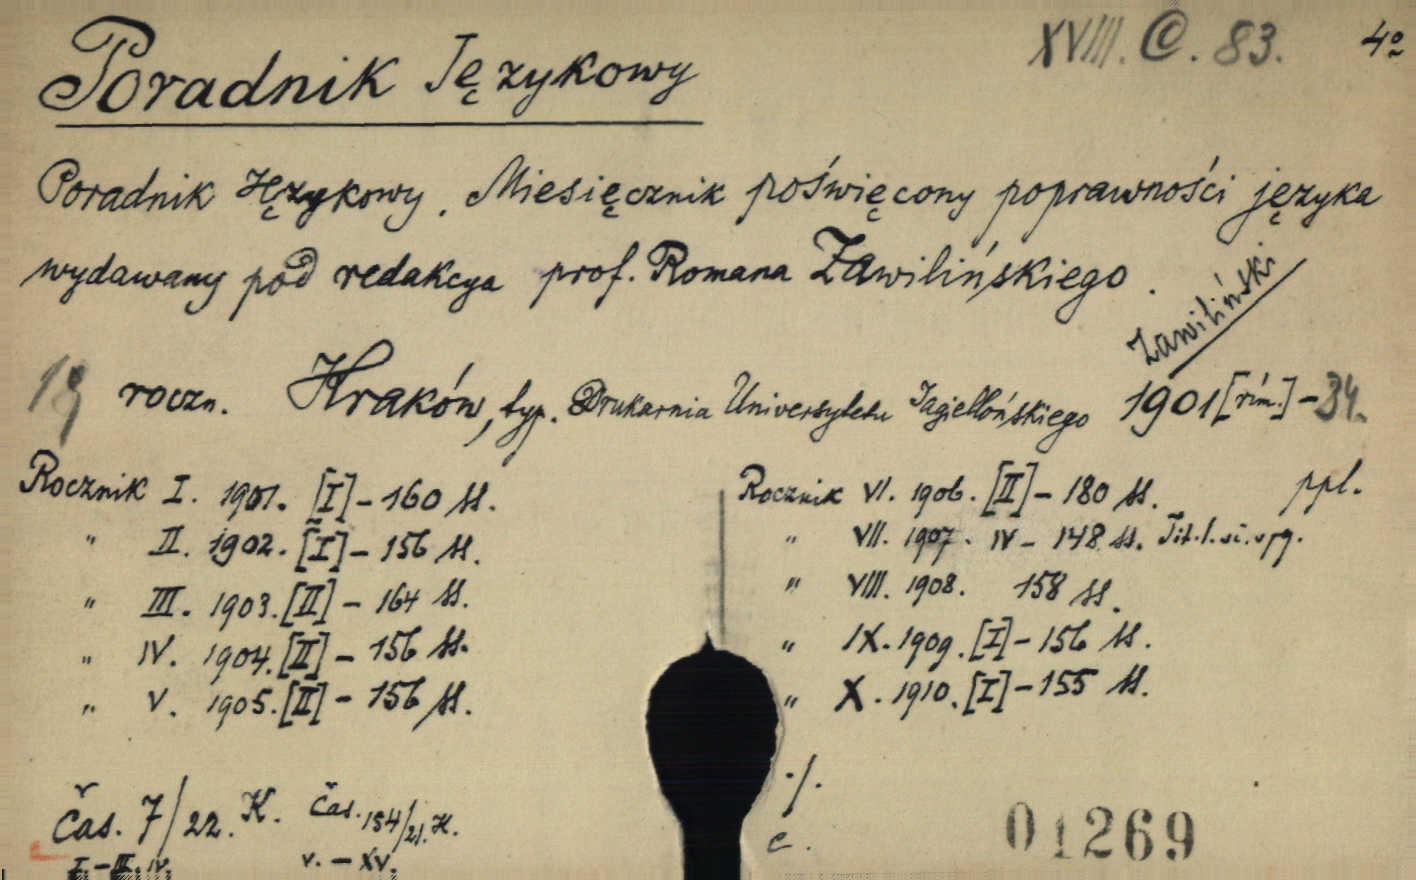 XVIII. C. 83. 4º
Poradnik Językowy
Poradnik Językowy. Miesięcznik poświęcony poprawności języka
wydawany pod redakcya prof. Romana Zawilińskiego.
Zawiliński
roczn. Kraków, typ. Drukarnia Universytetu Jagiellońskiego 1901 [řím.] - 34.
Rocznik I. 1901. [I] - 160 ss.
" II. 1902. [I] - 156 ss.
" III. 1903. [II] - 164 ss.
" IV. 1904. [II] - 156 ss.
" V. 1905. [II] - 156 ss.
Rocznik VI. 1906. [II] - 180 ss. ppl.
" VII. 1907. IV - 148 ss. Tit. l.
" VIII. 1908. 158 ss.
" IX. 1909. [I] - 156 ss.
" X. 1910. [I] - 155 ss.
Čas. 7/22. K. Čas. 154/21. K.
I. - III. IV. V. - XV.
./.
c.
01269